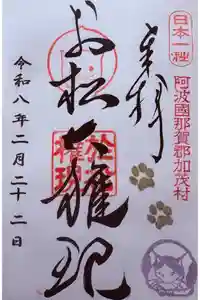 日本一社
阿波國那賀郡加茂村
奉拝
お松大権現
令和八年二月二十二日